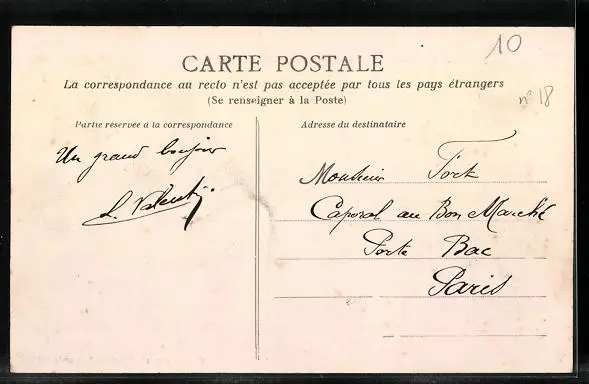 10
CARTE POSTALE
La correspondance au recto n'est pas acceptée par tous les pays étrangers
(Se renseigner à la Poste)
n° 18
Partie réservée à la correspondance
Adresse du destinataire
Un grand bonjour
L. Valenti
Monsieur Fort
Caporal au Bon Marché
Porte Bac
Paris